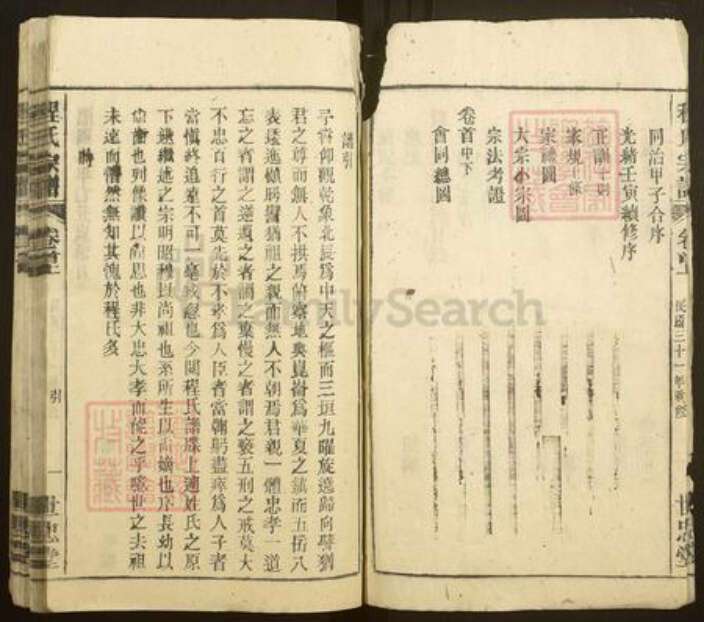 程氏宗譜
卷首上
民國三十一年重修
世忠堂
同治甲子合序
光緒壬寅續修序
正譌十則
家規十條
宗禮圖
大宗小宗圖
宗法考證
卷首中下
會同總圖
譜引
予嘗仰觀乾象北辰爲中天之樞而三垣九曜旋遶歸向譬猶
君之尊而無人不拱焉俯察地輿崑崙爲華夏之鎭而五岳八
表逶迤顧歸譬猶祖之親而無人不朝焉君親一體忠孝一道
忘之者謂之逆慢之者謂之褻五刑之戒莫大
不忠百行之首莫先於不孝爲人臣者當鞠躬盡瘁爲人子者
當愼終追遠不可一毫或忽也今閱程氏譜牒上遡姓氏之原
下逮繼述之宗明昭穆以尚祖也系所生以尚嫡也序長幼以
尚齒也列像讚以尚思也非大忠大孝而能之乎噫世之去祖
未遠而懵然無知其愧於程氏多
程氏宗譜
卷首上
引
一
世忠堂
FamilySearch